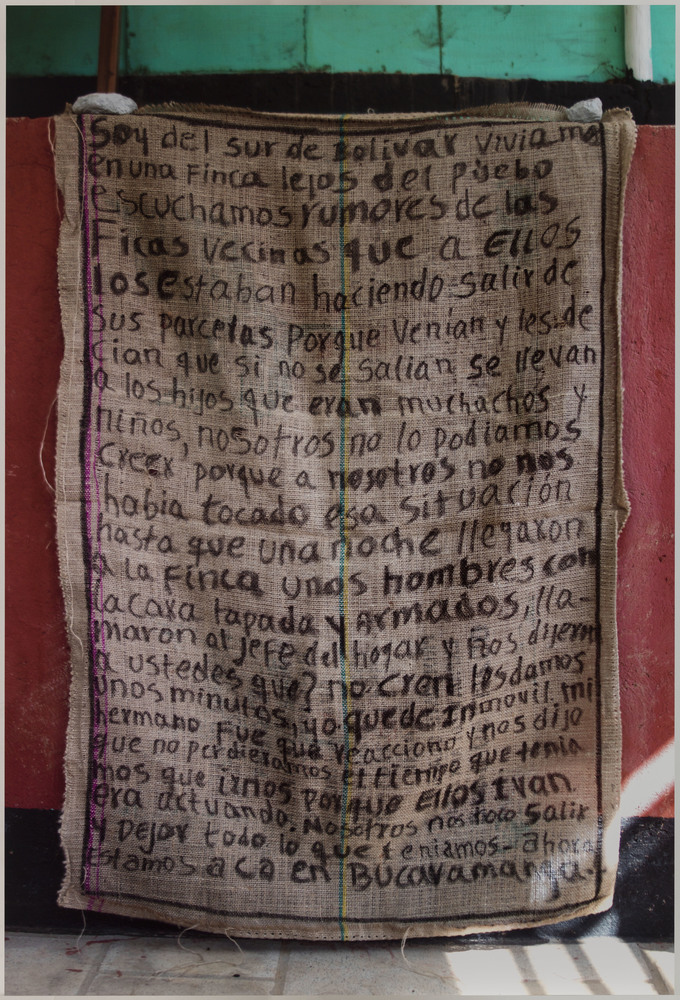 Soy del sur de Bolivar Viviamos
en una Finca lejos del pueblo
escuchamos rumores de las
Ficas vecinas que a Ellos
los estaban haciendo salir de
sus parcelas Porque Venian y les de
cian que si no se salian se llevan
a los hijos que eran muchachos y
niños, nosotros no lo podiamos
creer porque a nosotros no nos
habia tocado esa situación
hasta que una noche llegaron
a la Finca unos hombres con
la Cara tapada y Armados, lla-
maron al jefe del hogar y nos dijeron
a ustedes que? no creen. les damos
unos minutos, yo quede Inmovil mi
hermano Fue que reacciono y nos dijo
que no perdieramos el tiempo que tenia
mos que irnos porque Ellos Ivan
era actuando. Nosotros nos toco salir
y Dejar todo lo que teniamos - ahora
Estamos aca en Bucaramanga.